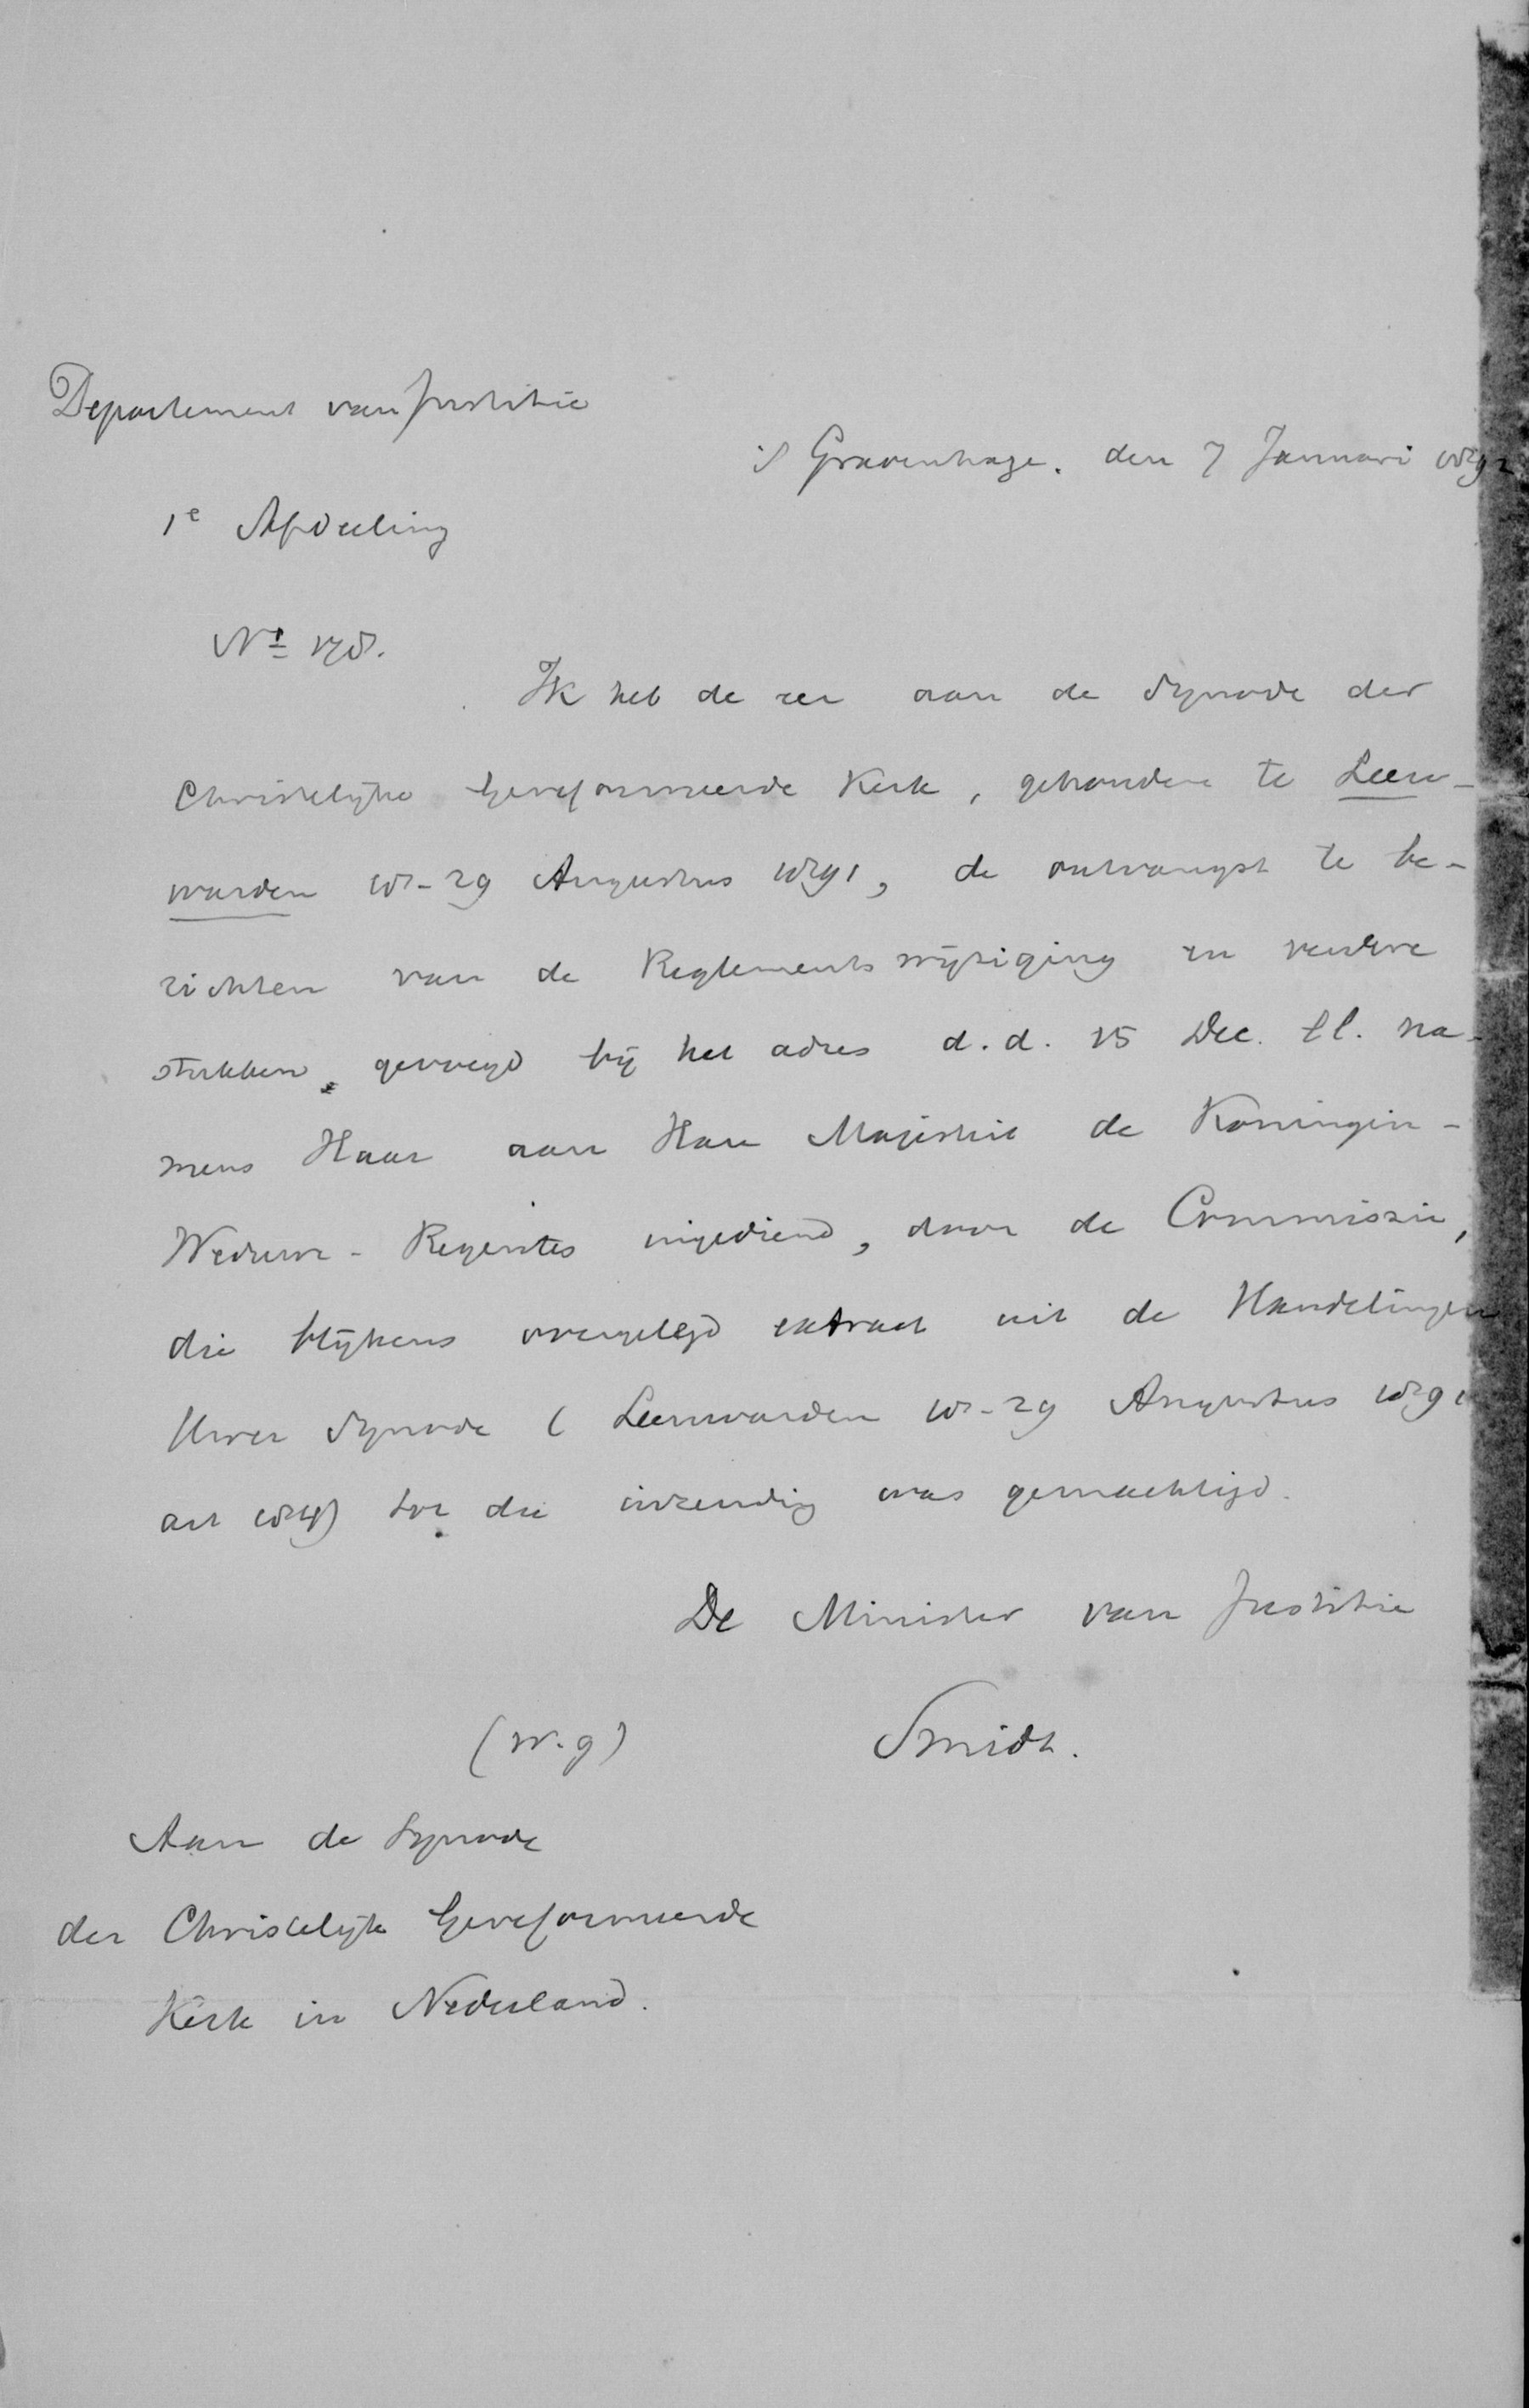 Departement van Justitie
's Gravenhage. den 7 Januari 1892
1e Afdeeling
No 178.
Ik heb de eer aan de Synode der
Christelijke Gereformeerde Kerk, gehouden te Leeu-
warden 18-29 Augustus 1891, de ontvangst te be-
richten van de Reglementswijziging en verdere
stukken, gevoegd bij het adres d.d. 15 Dec. ll. na-
mens Haar aan Hare Majesteit de Koningin-
Weduwe-Regentes ingediend, door de Commissie,
die blijkens overgelegd extract uit de Handelingen
Uwer Synode (Leeuwarden 18-29 Augustus 1891
art 184) tot die inzending was gemachtigd.
De Minister van Justitie
(w.g) Smidt.
Aan de Synode
der Christelijke Gereformeerde
Kerk in Nederland.